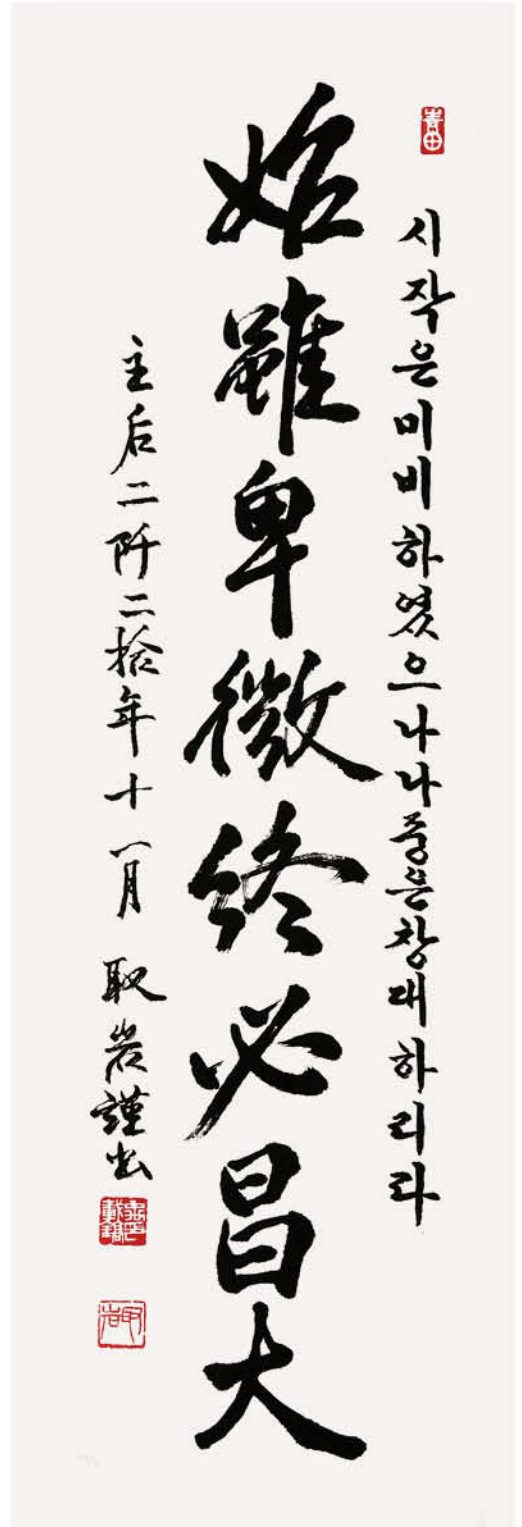 青田
시작은미비하였으나나중은창대하리라
始雖卑微終必昌大
主后二阡二拾年十一月 取岩謹書
取岩